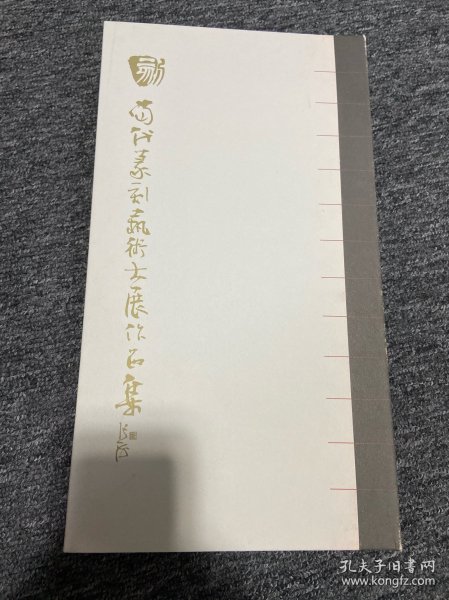 當代篆刻藝術大展作品集
孔夫子旧书网
www.kongfz.com